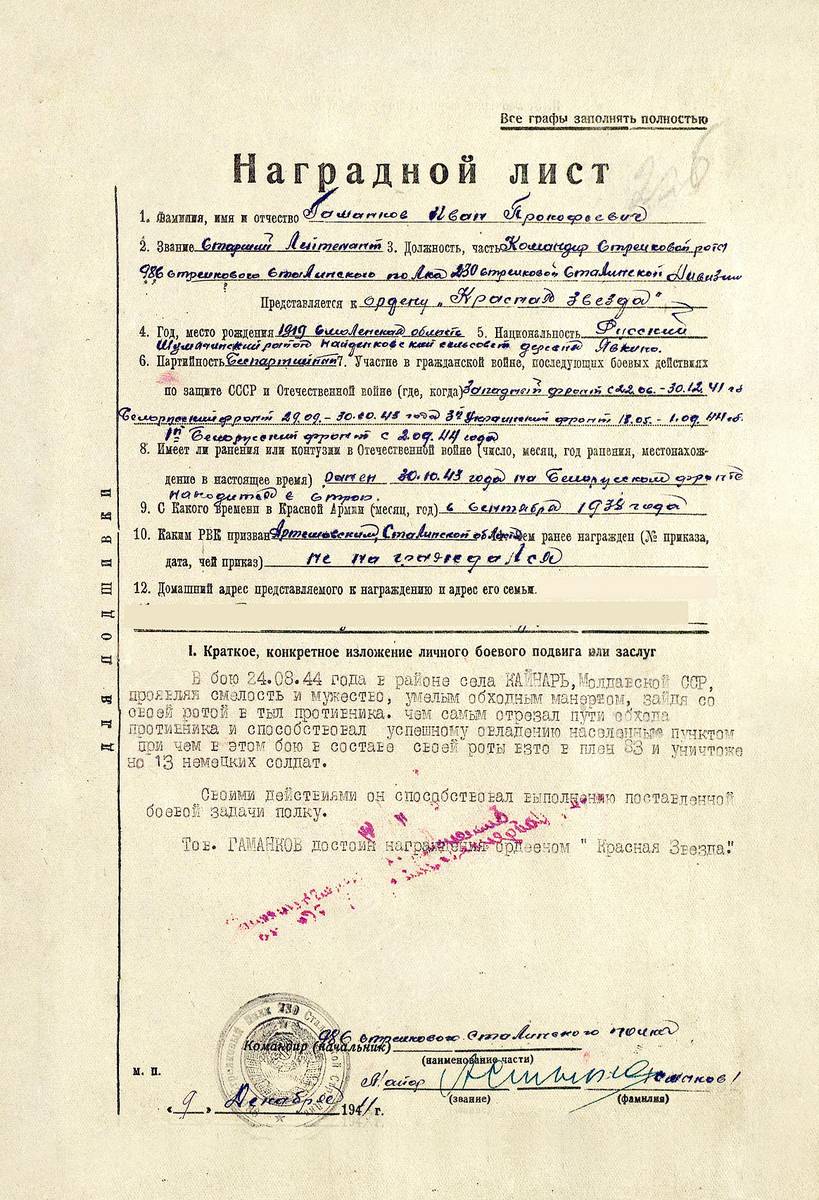 Все графы заполнять полностью
226
Наградной лист
1. Фамилия, имя и отчество Гаманков Иван Прокофьевич
2. Звание Старший Лейтенант 3. Должность, часть Командир Стрелковой роты
986 стрелкового Сталинского полка 230 стрелковой Сталинской Дивизии
Представляется к ордену „Красная звезда"
4. Год, место рождения 1919 Смоленской области 5. Национальность Русский
Шумячинский район Найденковский сельсовет деревня Явкино.
6. Партийность Беспартийный 7. Участие в гражданской войне, последующих боевых действиях
по защите СССР и Отечественной войне (где, когда) Западный фронт с 22.06. - 30.12.41 г
Белорусский фронт 29.09. - 30.10.43 года 3й Украинский фронт 18.05. - 1.09.44 г.
1й Белорусский фронт с 2.09.44 года
8. Имеет ли ранения или контузии в Отечественной войне (число, месяц, год ранения, местонахож-
дение в настоящее время) ранен 30.10.43 года на Белорусском фронте
находится в строю.
9. С Какого времени в Красной Армии (месяц, год) с сентября 1938 года
10. Каким РВК призван Артемовским, Сталинской области ем ранее награжден (№ приказа,
дата, чей приказ) не награждался
12. Домашний адрес представляемого к награждению и адрес его семьи.
ДЛЯ ПОДШИВКИ
I. Краткое, конкретное изложение личного боевого подвига или заслуг
В бою 24.08.44 года в районе села КАЙНАРЬ, Молдавской ССР,
проявляя смелость и мужество, умелым обходным манертом, зайдя со
своей ротой в тыл противника. чем самым отрезал пути обхода
противника и способствовал успешному овладению населенным пунктом
при чем в этом бою в составе своей роты взто в плен 83 и уничтоже
но 13 немецких солдат.
Своими действиями он способствовал выполнению поставленной
боевой задачи полку.
Тов. ГАМАНКОВ достоин награждения ордееном " Красная Звезда."
986 стрелкового Сталинского полка
Командир (начальник)
(наименование части)
М. П.
Майор
(звание) (фамилия)
« 9 » Декабря 1944 г.